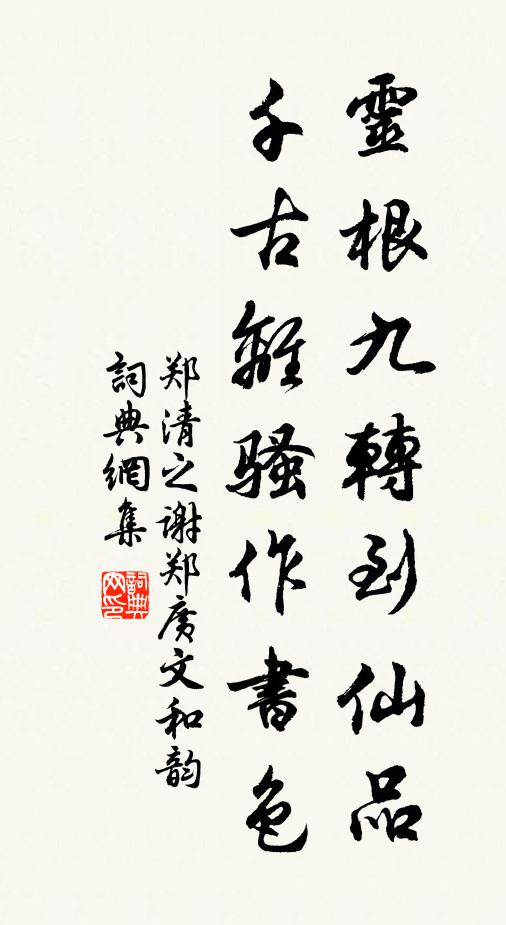 靈根九轉到仙品
千古離騷作書色
郑清之谢郑廣文和韵
詞典網集
詞典网印